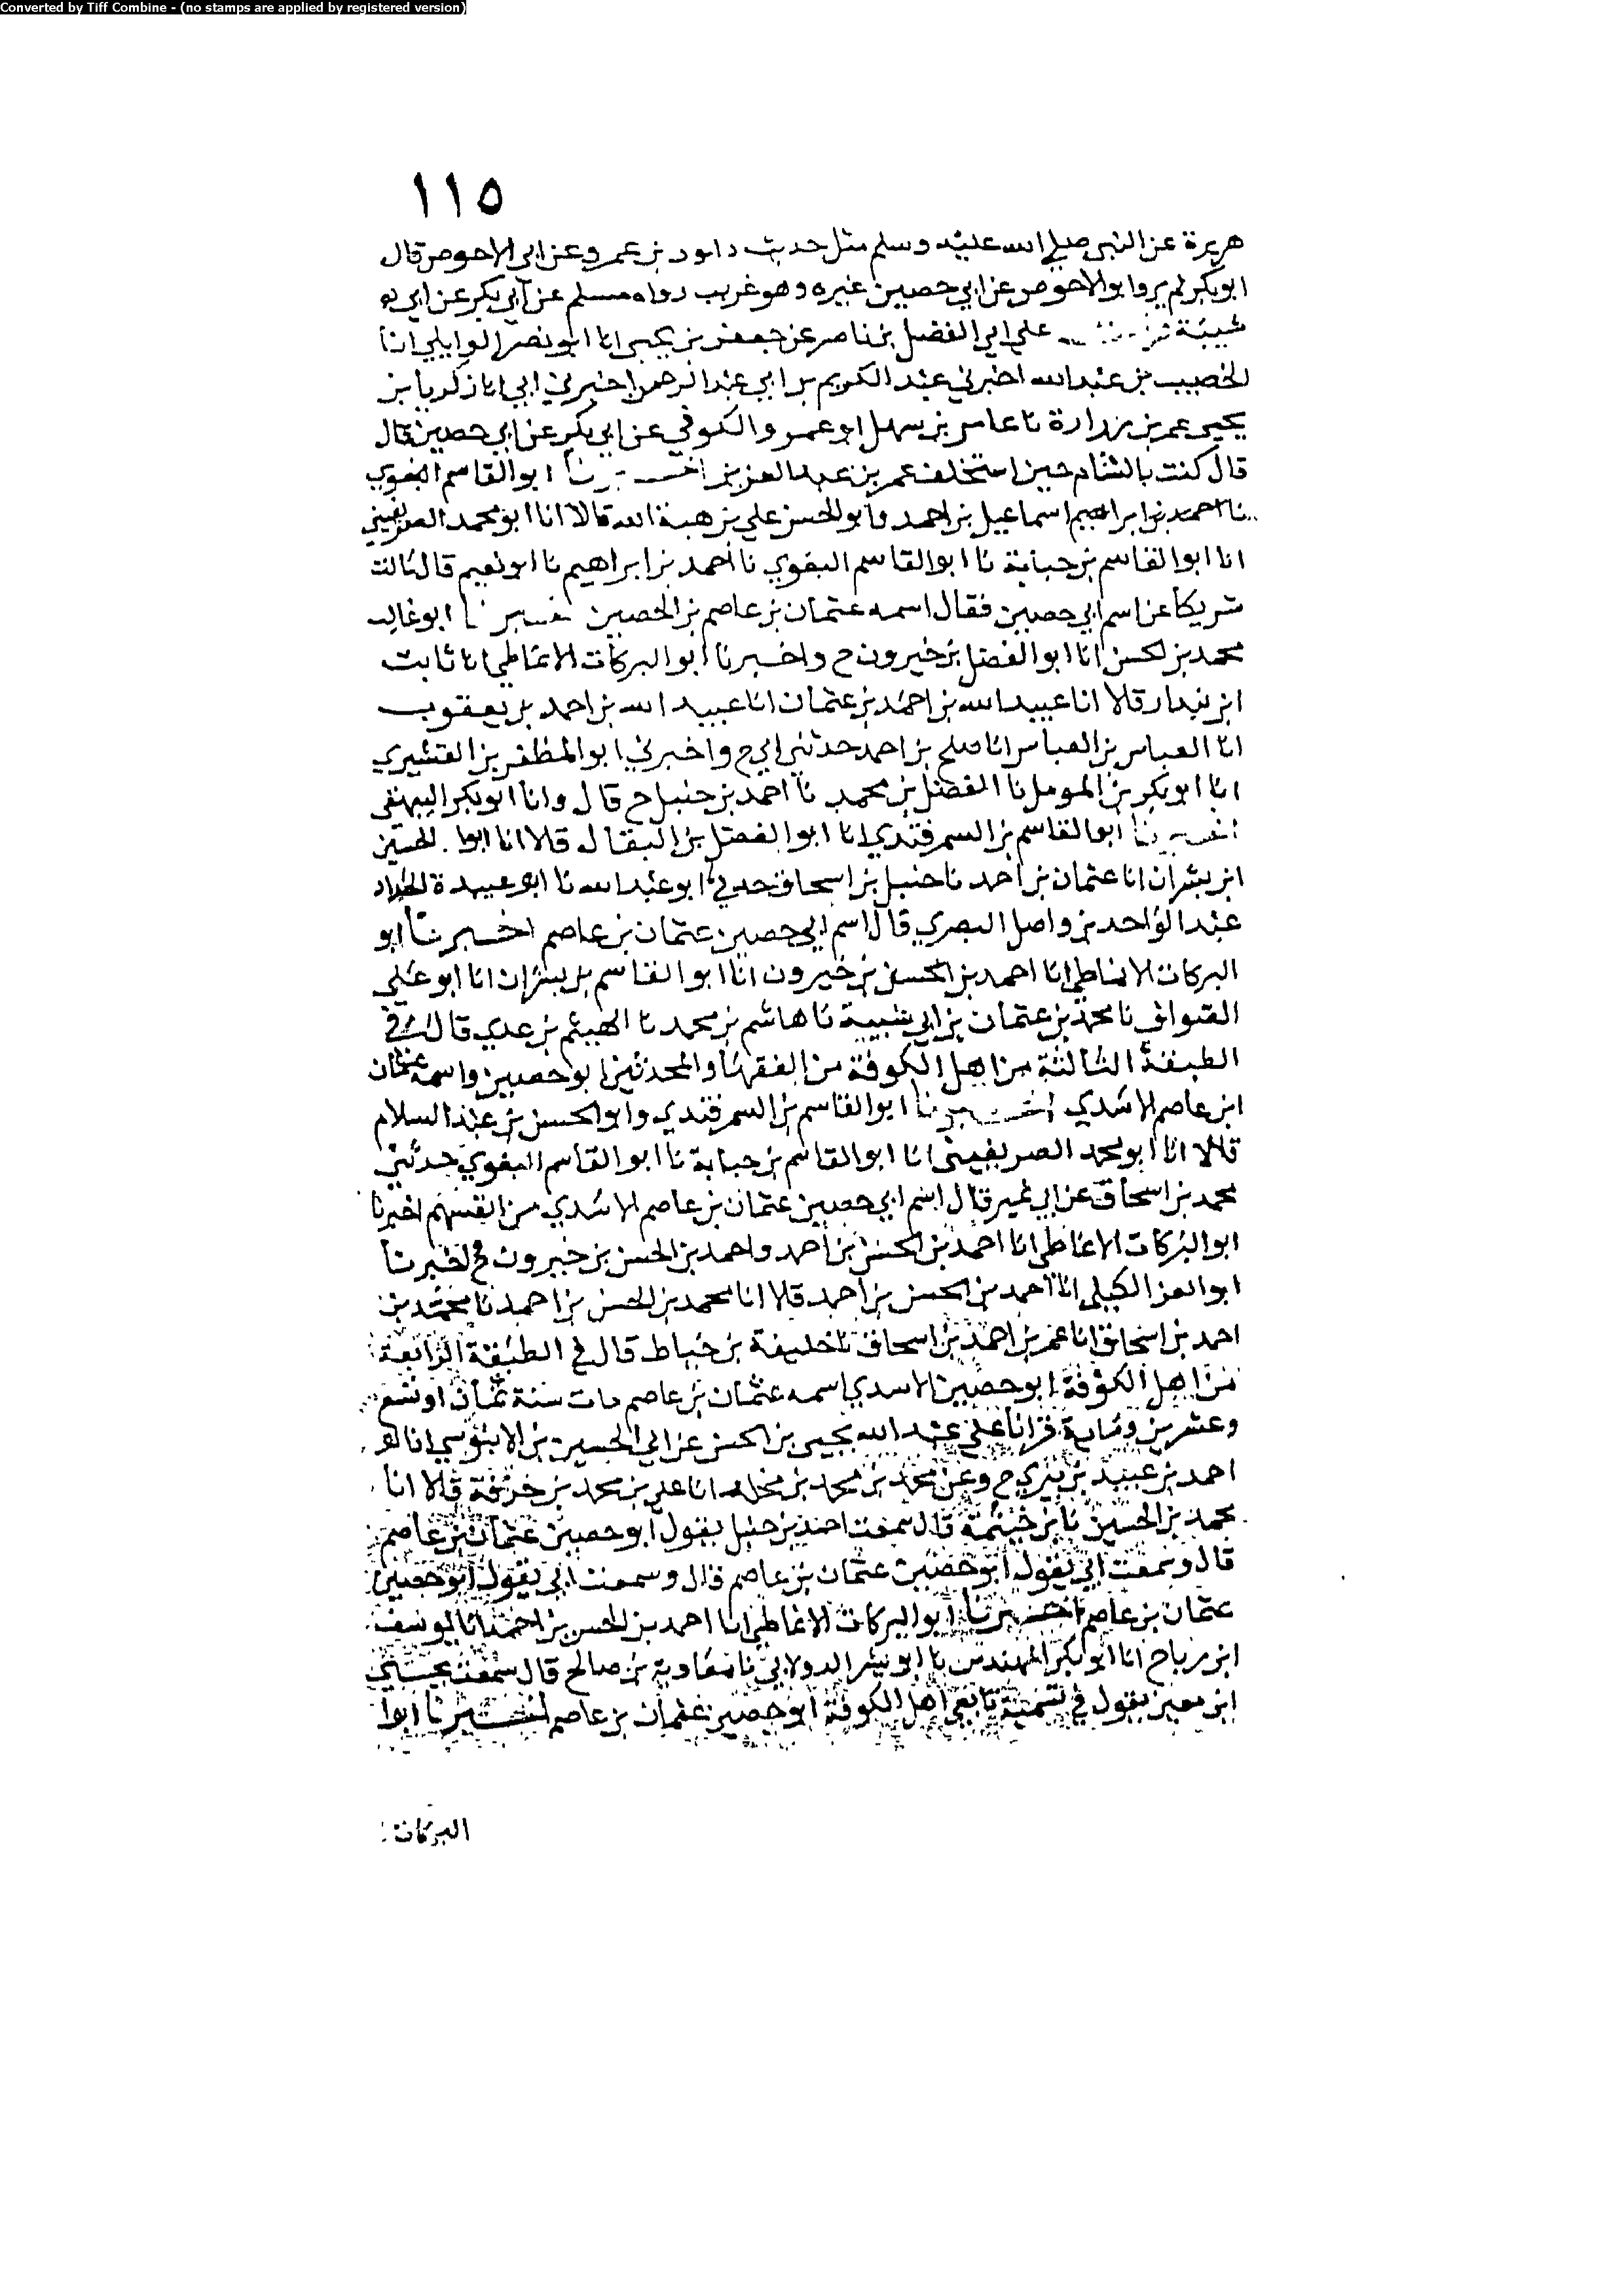 Converted by Tiff Combine - (no stamps are applied by registered version)
١١٥
هريرة عن النبي صلى الله عليه وسلم مثل حديث داود بن عمرو عن ابي الاحوص قال
ابو بكر لم يروا ابو الاحوص عن ابي حصين غيره وهو غريب رواه مسلم عن ابي بكر عن ابي
شيبة على ابي الفضل بن ناصر عن جعفر بن يحيى انا ابو نصر الوايلي انا
الخصيب بن عبد الله اخبرني عبد الكريم بن ابي عبد الرحمن اخبرني ابي انا زكريا بن
يحيى عمر بن زرارة نا عامر بن سهل ابو عمرو الكوفي عن ابي بكر عن ابي حصين قال
قال كنت بالشام حين استخلف عمر بن عبد العزيز اخبرنا ابو القاسم البغوي
نا احمد بن ابراهيم اسماعيل بن احمد وابو الحسن علي بن هبة الله قالا انا ابو محمد الصريفيني
انا ابو القاسم بن حبابة نا ابو القاسم البغوي نا احمد بن ابراهيم نا ابو نعيم قال سالت
شريكا عن اسم ابي حصين فقال اسمه عثمان بن عاصم بن الحصين اخبرنا ابو غالب
محمد بن الحسن انا ابو الفضل بن خيرون ح واخبرنا ابو البركات الانماطي انا ثابت
ابن بندار قالا انا عبيد الله بن احمد بن عثمان انا عبيد الله بن احمد بن يعقوب
انا العباس بن العباس انا صلح بن احمد حدثني ابي ح واخبرني ابو المظفر بن القشيري
انا ابو بكر بن المومل نا الفضل بن محمد نا احمد بن حنبل ح قال وانا ابو بكر البيهقي
اخبرنا ابو القاسم بن السمرقندي انا ابو الفضل بن البقال قالا انا ابوا الحسين
ابن بشران انا عثمان بن احمد نا حنبل بن اسحاق حدثني ابو عبد الله نا ابو عبيدة الحداد
عبد الواحد بن واصل البصري قال اسم ابي حصين عثمان بن عاصم اخبرنا ابو
البركات الانماطي انا احمد بن الحسن بن خيرون انا ابو القاسم بن بشران انا ابو علي
الصواف نا محمد بن عثمان بن ابي شيبة نا هاشم بن محمد نا الهيثم بن عدي قال في
الطبقة الثالثة من اهل الكوفة من الفقها والمحدثين ابو حصين واسمه عثمان
ابن عاصم الاسدي اخبرنا ابو القاسم بن السمرقندي وابو الحسن بن عبد السلام
قالا انا ابو محمد الصريفيني انا ابو القاسم بن حبابة نا ابو القاسم البغوي حدثني
محمد بن اسحاق عن ابي نمير قال اسم ابي حصين عثمان بن عاصم الاسدي من انفسهم اخبرنا
ابو البركات الانماطي انا احمد بن الحسن بن احمد واحمد بن الحسن بن خيرون ح اخبرنا
ابو العز الكيلي انا احمد بن الحسن بن احمد قالا انا محمد بن الحسن بن احمد نا محمد بن
احمد بن اسحاق انا عمر بن احمد بن اسحاق نا خليفة بن خياط قال في الطبقة الرابعة
من اهل الكوفة ابو حصين الاسدي اسمه عثمان بن عاصم مات سنة ثمان او تسع
وعشرين وماية قرانا على عبد الله يحيى بن الحسن عن ابي الحسين بن الابنوسي انا
احمد بن عبيد بن بيري ح وعن محمد بن محمد بن مخلد انا علي بن محمد بن خزفة قالا انا
محمد بن الحسين نا بن خيثمة قال سمعت احمد بن حنبل يقول ابو حصين عثمان بن عاصم
قال وسمعت ابي يقول ابو حصين عثمان بن عاصم قال وسمعت ابي يقول ابو حصين
عثمان بن عاصم اخبرنا ابو البركات الانماطي انا احمد بن الحسن بن احمد انا يوسف
ابن رباح انا ابو بكر المهندس نا ابو بشر الدولابي نا معاوية بن صالح قال سمعت يحيى
ابن معين يقول في تسمية تابعي اهل الكوفة ابو حصين عثمان بن عاصم اخبرنا ابوا
البركات